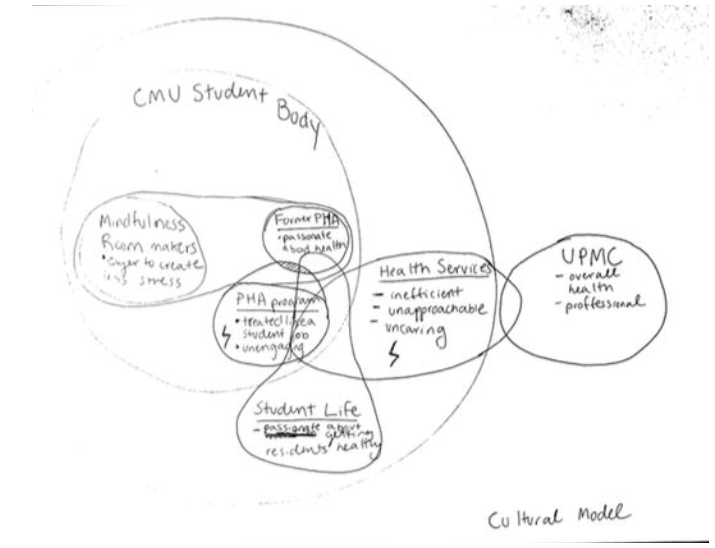 CMU Student
Body
Mindfulness
Room makers
• Eager to create
less stress
Former PHA
• passionate
about health
PHA program
• treated like a
student job
• unengaging
Health Services
- inefficient
- unapproachable
- uncaring
UPMC
- overall
health
- proffessional
Student Life
- passionate about
getting
residents healthy
Cultural Model